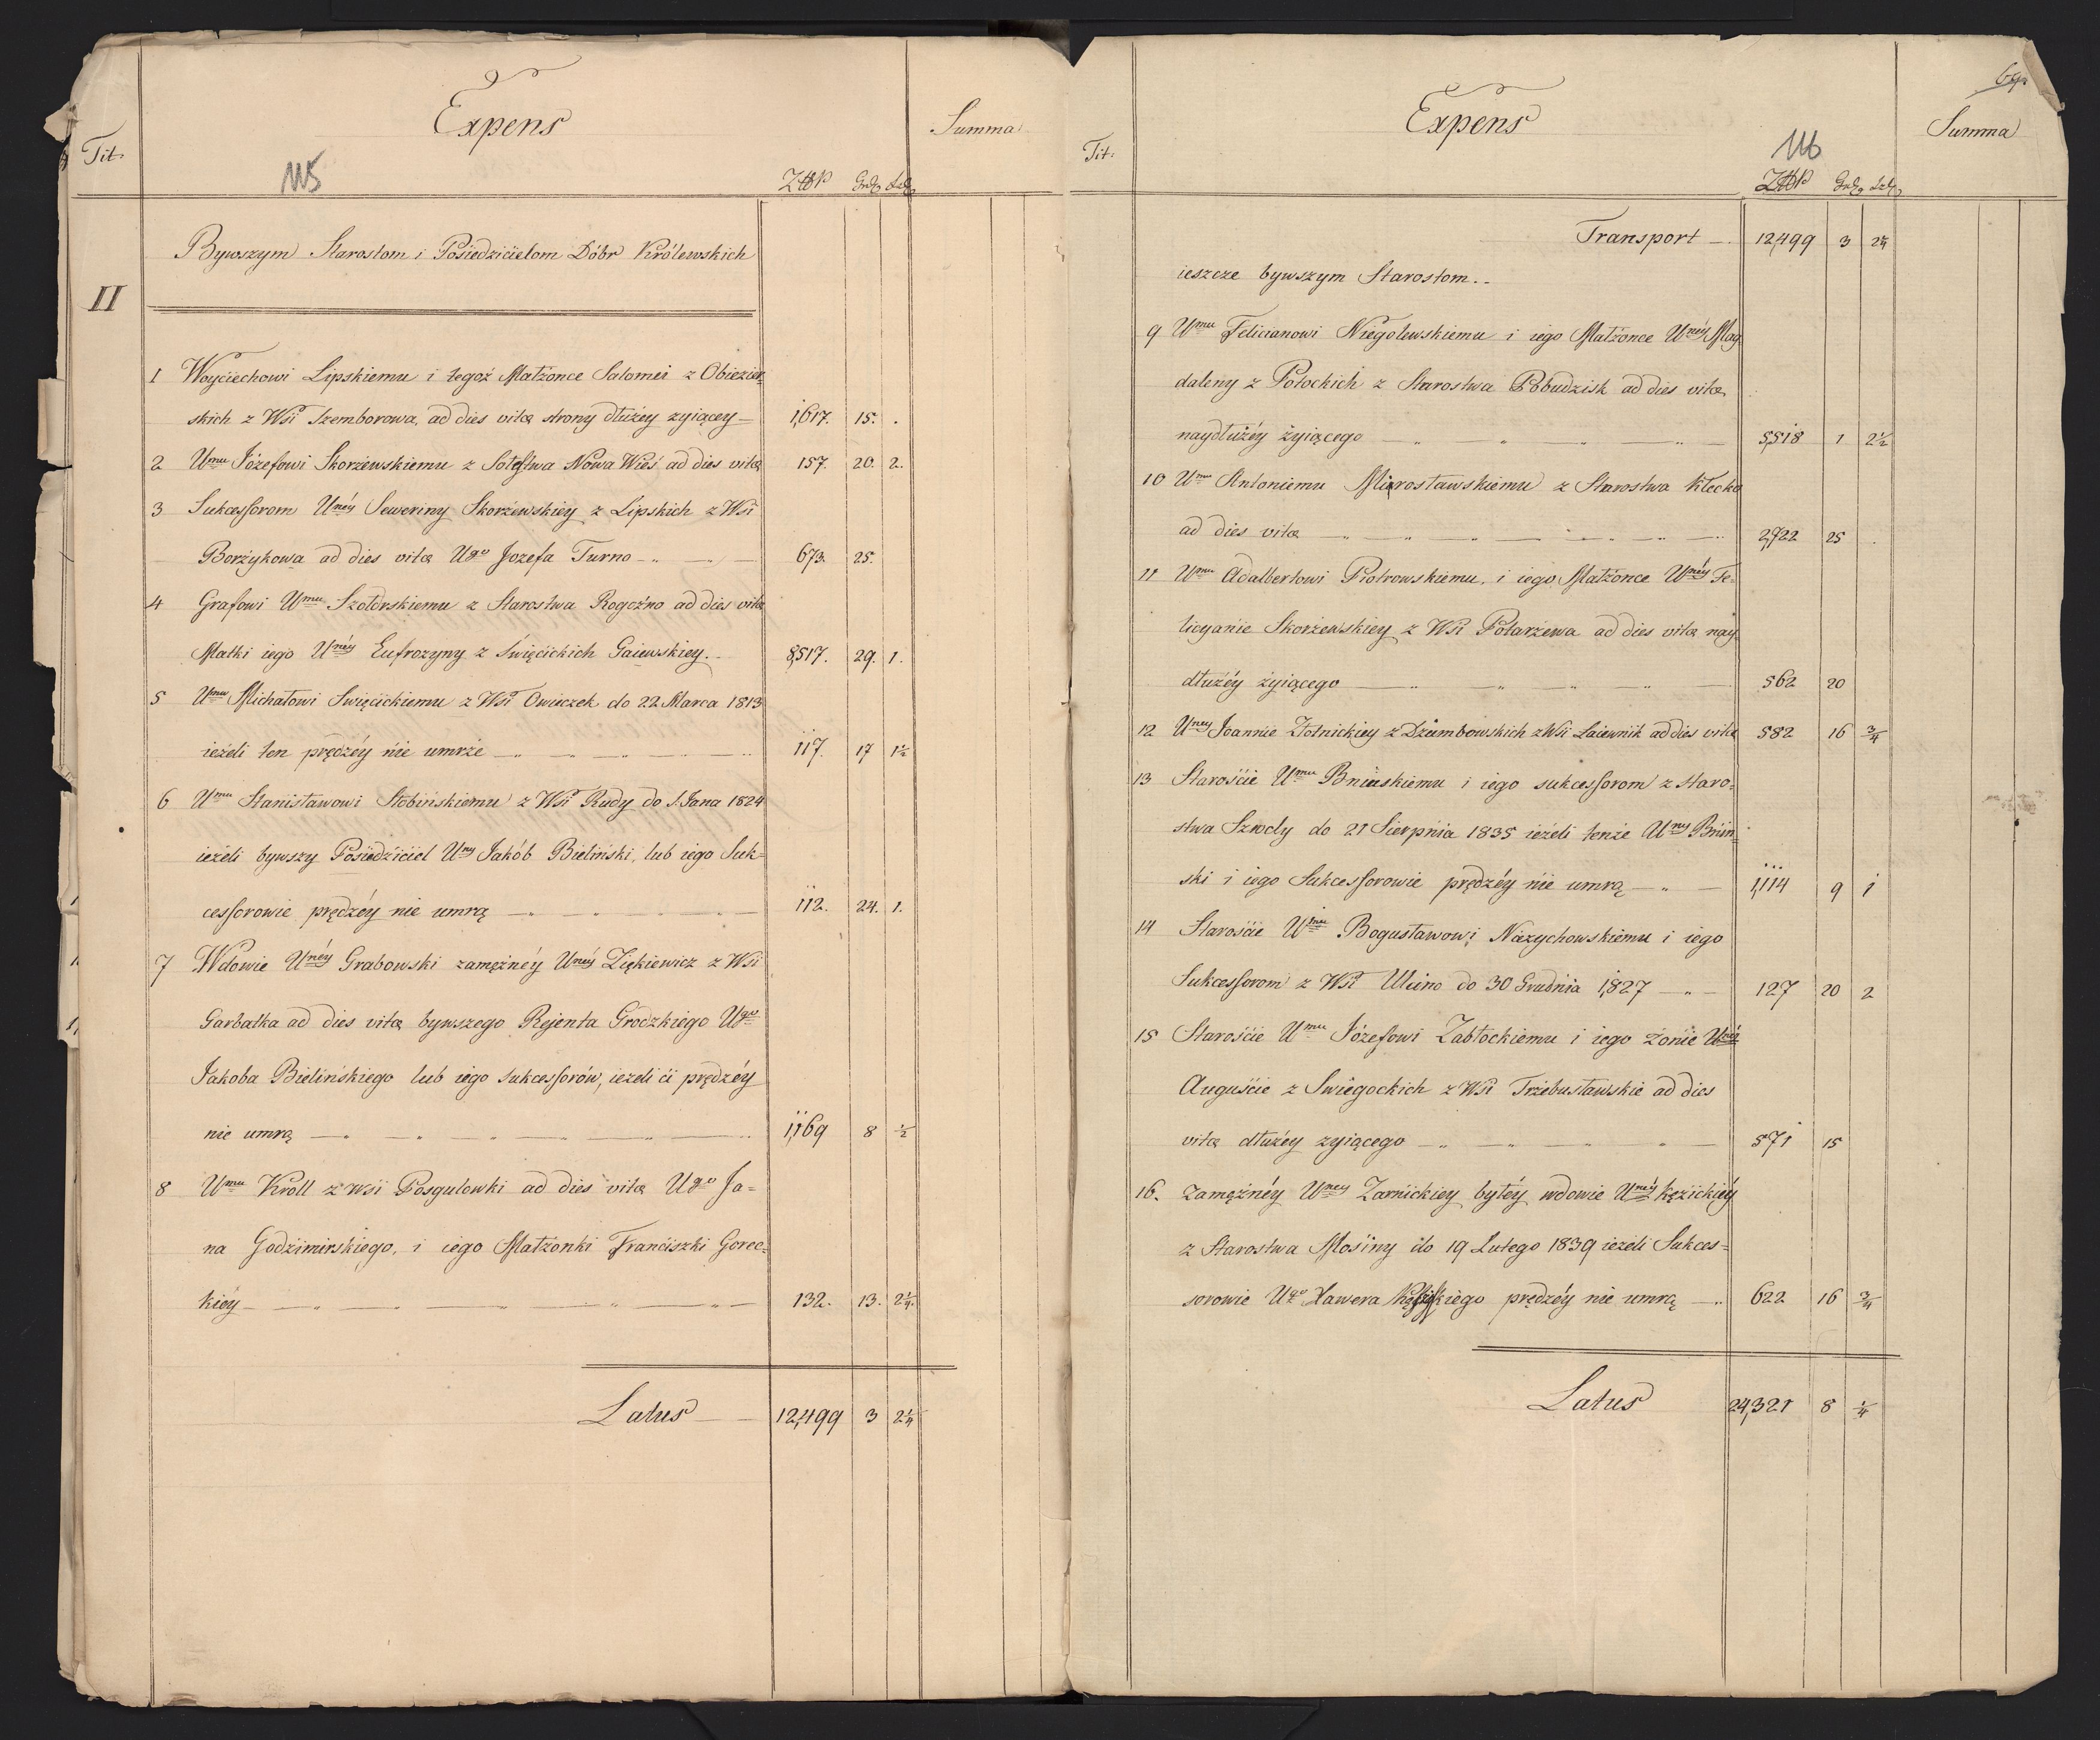 Expens
Summa
Tit.
115
Złł P Grd Szd
Bywszym Starostom i Posiedzicielom Dóbr Królewskich
II
1 Woyciechowi Lipskiemu i tegoż Małżonce Salomei z Obiezier-
skich z Wsi Szemborowa, ad dies vitæ strony dłużey zyiącey — 1,617. 15. .
2 Umu Józefowi Skorzewskiemu z Sołtstwa Nowa Wieś ad dies vitæ 157. 20. 2.
3 Sukcessorom Unéy Seweriny Skorzewskiey z Lipskich z Wsi
Borzykowa ad dies vitæ Ugo Jozefa Turno — 673. 25.
4 Grafowi Umu Szołdrskiemu z Starostwa Rogoźno ad dies vitæ
Matki iego Unéy Eufrozyny z Święcickich Gaiewskiey. 8,517. 29. 1.
5 Umu Michałowi Swięcickiemu z Wsi Owieczek do 22 Marca 1813
ieżeli ten prędzéy nie umrże — 117. 17 1½
6 Umu Stanisławowi Słobińskiemu z Wsi Rudy do S. Jana 1824
ieżeli bywszy Posiedziciel Uny Jakób Bieliński, lub iego Suk-
cessorowie prędzéy nie umrą — 112. 24. 1.
7 Wdowie Unéy Grabowski zamężnéy Unéy Ziękiewicz z Wsi
Garbatka ad dies vitæ bywszego Rejenta Grodzkiego Ugo
Jakoba Bielińskiego lub iego sukcessorów, ieżeli ći prędzéy
nie umrą — 1,169 8 ½
8 Umu Kroll z wsi Posgulewki ad dies vitæ Ugo Ja=
na Godzimirskiego, i iego Małżonki Franciszki Gorec-
kiéy — 132. 13. 2¼.
Latus — 12,499 3 2¼
69
Expens
Summa
Tit:
116
Złł P Grd Szd
Transport — 12,499 3 2¼
ieszcze bywszym Starostom..
9 Umu Felicianowi Niegolewskiemu i iego Małżonce Unéy Mag
daleny z Potockich z Starostwa Pobudzisk ad dies vitæ
naydłużéy żyiącego — 5,518 1 2½
10 Umu Antoniemu Mierosławskiemu z Starostwa Klecko
ad dies vitæ — 2,722 25 .
11 Umu Adalbertowi Piotrowskiemu, i iego Małżonce Unéy Fe-
licyanie Skorzewskiey z Wsi Potarzewa ad dies vitæ nay
dłużéy żyiącego — 562 20
12 Uney Joannie Złotnickiey z Dziembowskich z Wsi Laiewnik ad dies vitæ 582 16 ¾
13 Starośćie Umu Bnińskiemu i iego sukcessorom z staro-
stwa Szrody do 21 Sierpnia 1835 ieżeli tenże Uny Bniń-
ski i iego Sukcessorowie prędzéy nie umrą — 1,114 9 1
14 Starośćie Umu Bogusławowi Niezychowskiemu i iego
Sukcessorom z Wsi Uleino do 30 Grudnia 1,827 — 127 20 2
15 Starośćie Umu Józefowi Zabłockiemu i iego żonie Unéy
Auguśćie z Swiegockich z Wsi Trzebusławskie ad dies
vitæ dłużéy zyiącego — 571 15
16. zamężnéy Uney Zarnickiey byłéy wdowie Unéy Kęzickiéy
z Starostwa Mosiny do 19 Lutego 1839 ieżeli Sukces=
sorowie Ugo Xawera prędzéy nie umrą — 622 16 ¾
Latus 24,321 8 ¼